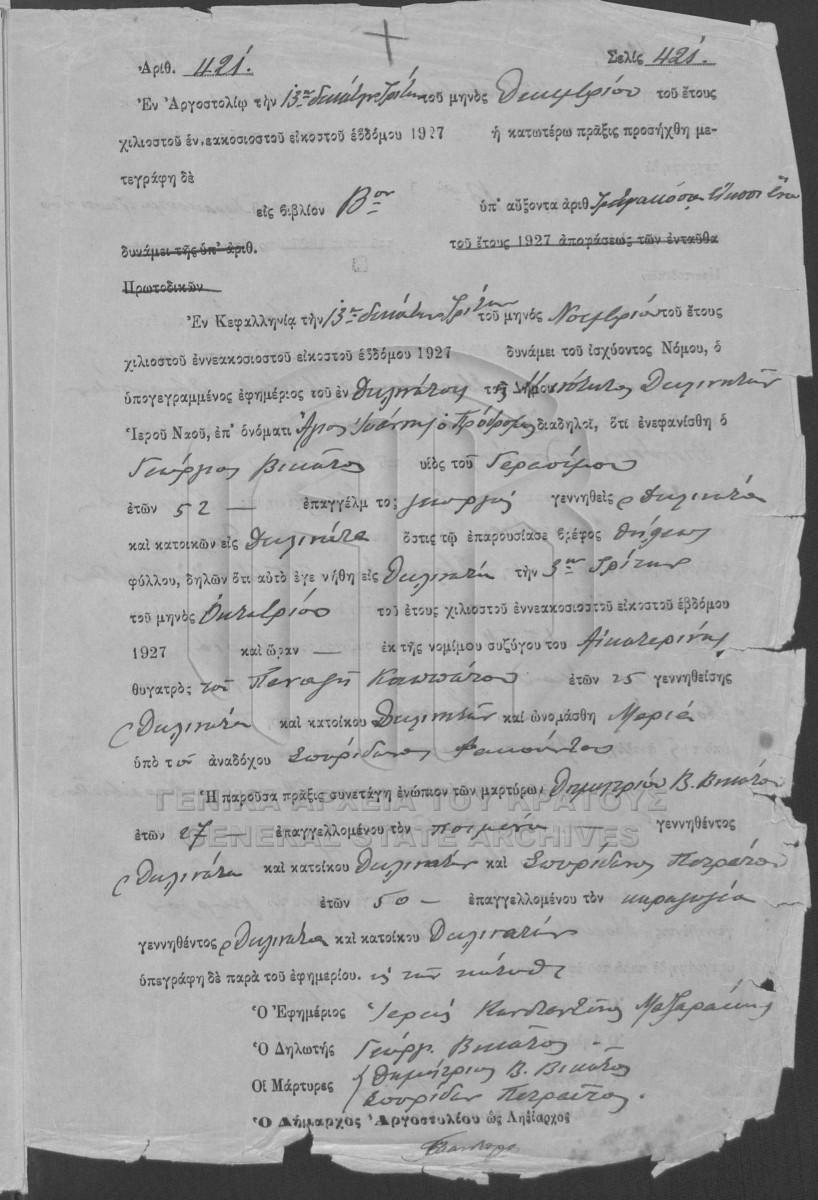 Ἀριθ. 421. Σελὶς 421.
Ἐν Ἀργοστολίῳ τὴν 13ην δεκάτην τρίτην τοῦ μηνὸς Δεκεμβρίου τοῦ ἔτους
χιλιοστοῦ ἐννεακοσιοστοῦ εἰκοστοῦ ἑβδόμου 1927 ἡ κατωτέρω πρᾶξις προσήχθη με-
τεγράφη δὲ
εἰς βιβλίον Βον ὑπ' αὔξοντα ἀριθ. τετρακόσια εἴκοσι ἕνα
δυνάμει τῆς ὑπ' ἀριθ. τοῦ ἔτους 1927 ἀποφάσεως τῶν ἐνταῦθα
Πρωτοδικῶν
Ἐν Κεφαλληνίᾳ τὴν 13ην δεκάτην τρίτην τοῦ μηνὸς Νοεμβρίου τοῦ ἔτους
χιλιοστοῦ ἐννεακοσιοστοῦ εἰκοστοῦ ἑβδόμου 1927 δυνάμει τοῦ ἰσχύοντος Νόμου, ὁ
ὑπογεγραμμένος ἐφημέριος τοῦ ἐν Διλινάτοις τῆς Κοινότητος Διλινατῶν
Ἱεροῦ Ναοῦ, ἐπ' ὀνόματι Ἅγιος Ἰωάννης ὁ Πρόδρομος διαδηλοῖ, ὅτι ἐνεφανίσθη ὁ
Γεώργιος Βικάτος υἱὸς τοῦ Γερασίμου
ἐτῶν 52 — ἐπαγγέλμ τος γεωργὸς γεννηθεὶς Διλινάτα
καὶ κατοικῶν εἰς Διλινάτα ὅστις τῷ ἐπαρουσίασε βρέφος θήλεως
φύλλου, δηλῶν ὅτι αὐτὸ ἐγεννήθη εἰς Διλινάτα τὴν 3ην τρίτην
τοῦ μηνὸς Ὀκτωβρίου τοῦ ἔτους χιλιοστοῦ ἐννεακοσιοστοῦ εἰκοστοῦ ἑβδόμου
1927 καὶ ὥραν — ἐκ τῆς νομίμου συζύγου του Αἰκατερίνης
θυγατρὸς τοῦ Παναγῆ Καππάτου ἐτῶν 25 γεννηθείσης
Διλινάτα καὶ κατοίκου Διλινατῶν καὶ ὠνομάσθη Μαρία
ὑπὸ τοῦ ἀναδόχου Σπυρίδωνος
Ἡ παροῦσα πρᾶξις συνετάγη ἐνώπιον τῶν μαρτύρων Δημητρίου Β. Βικάτου
ΓΕΝΙΚΑ ΑΡΧΕΙΑ ΤΟΥ ΚΡΑΤΟΥΣ
ἐτῶν 27 — ἐπαγγελλομένου τὸν ποιμένα — γεννηθέντος
GENERAL STATE ARCHIVES
Διλινάτα καὶ κατοίκου Διλινατῶν καὶ Σπυρίδωνος Πετράτου
ἐτῶν 50 — ἐπαγγελλομένου τὸν καραγωγέα
γεννηθέντος Διλινάτα καὶ κατοίκου Διλινατῶν
ὑπεγράφη δὲ παρὰ τοῦ ἐφημερίου.
Ὁ Ἐφημέριος Ἱερεὺς Κωνσταντῖνος Μαζαράκης
Ὁ Δηλωτὴς Γεώργ. Βικάτος —
Οἱ Μάρτυρες Δημήτριος Β. Βικάτος
Σπυρίδων Πετράτος.
Ὁ Δήμαρχος Ἀργοστολίου ὡς Ληξίαρχος